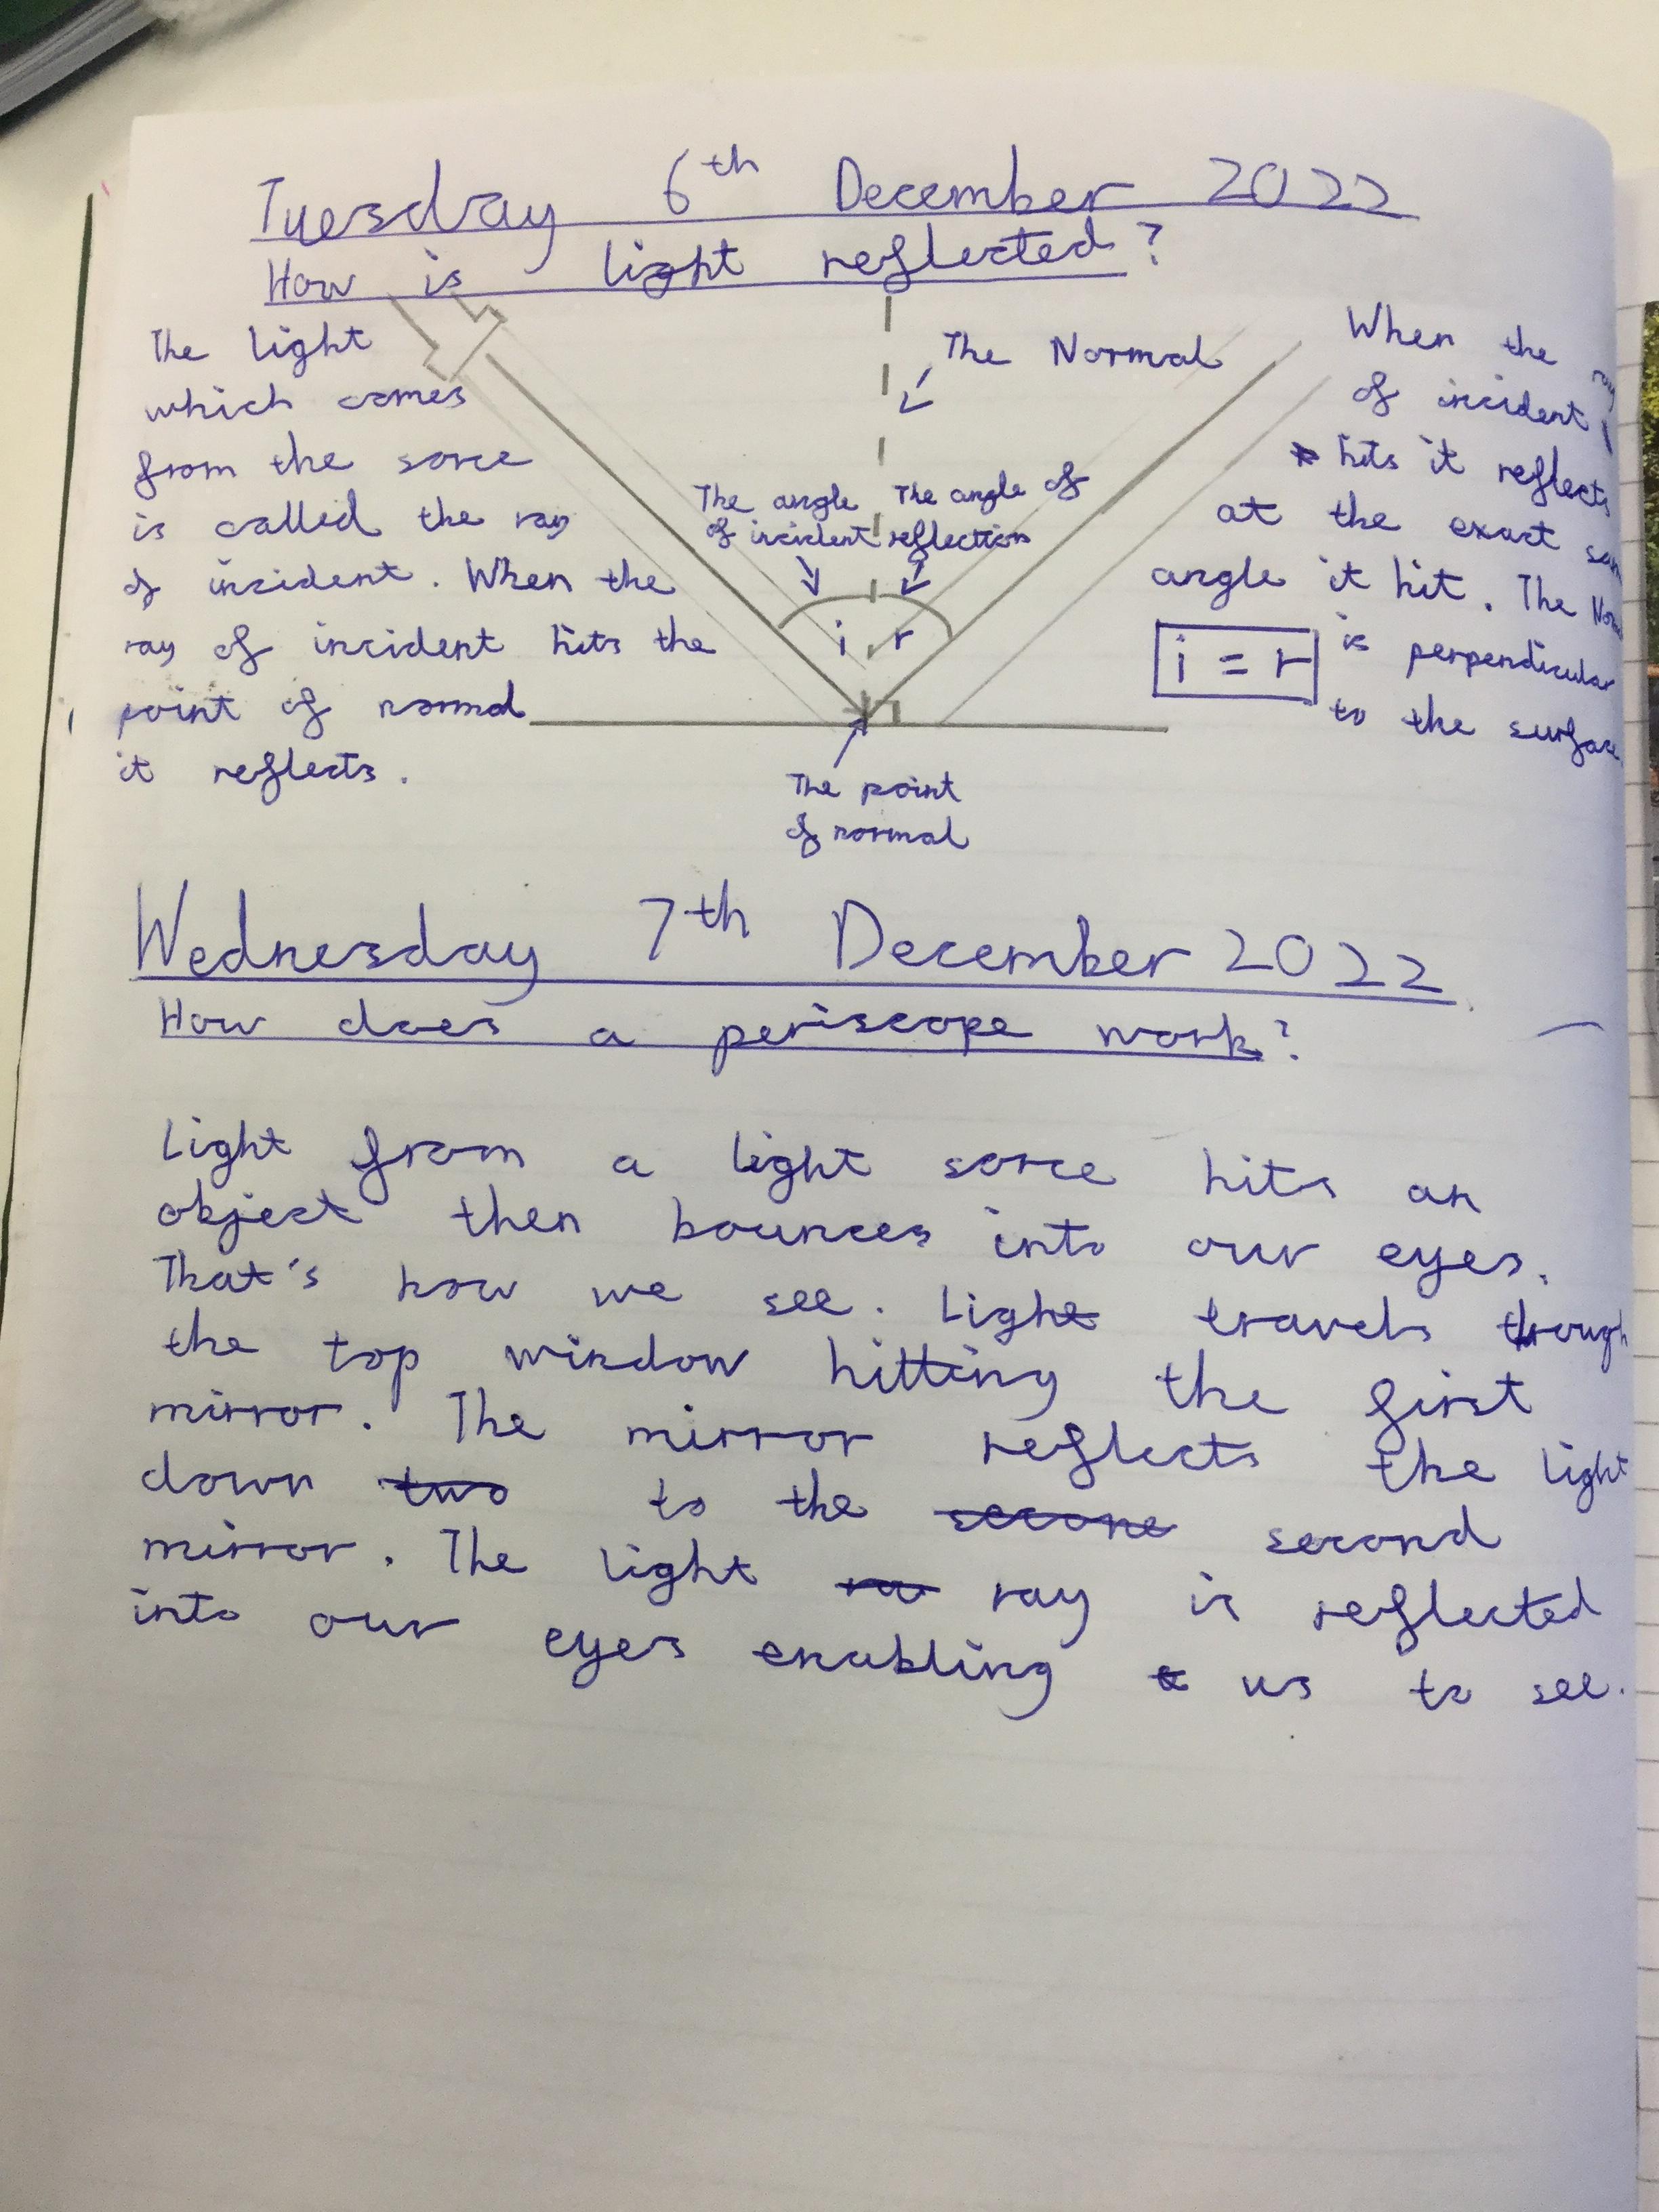 Tuesday 6th December 2022
How is light reflected?
The light
which comes
from the sorce
is called the ray
of incident. When the
ray of incident hits the
point of normal
it reflects.
The Normal
The angle
of incident
The angle of
reflection
i r
The point
of normal
When the ray
of incident
hits it reflects
at the exact
angle it hit. The
i = r
is perpendicular
to the surface
Wednesday 7th December 2022
How does a periscope work?
Light from a light sorce hits an
object then bounces into our eyes.
That's how we see. Light travels through
the top window hitting the first
mirror. The mirror reflects the light
down two to the secone second
mirror. The light ra ray is reflected
into our eyes enabling us to see.